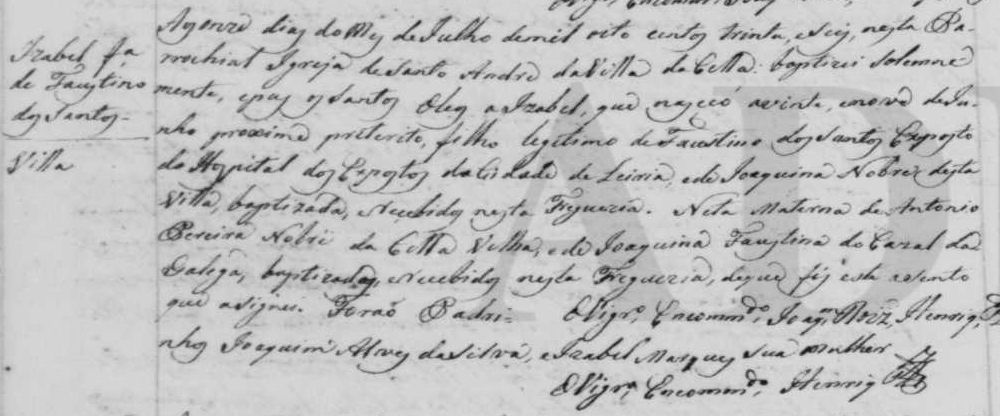 Izabel fa.
de Faustino
dos Santos-
Villa
Aos onze dias do Mes de Julho de mil oito centos trinta, e seis, nesta Pa-
rochial Igreja de Santo André da Villa da Cella baptizei Solemne
mente, e pus os Santos Oleos a Izabel, que nasceo a vinte, e nove de Ju-
nho proximo preterito, filho legitimo de Faustino dos Santos Exposto
do Hospital dos Expostos da Cidade de Leiria, e de Joaquina Nobre, desta
Villa, baptizada, e recebidos nesta Freguezia. Neta Materna de Antonio
Pereira Nobre da Cella Velha, e de Joaquina Faustina do Cazal da
Galega, baptizados, e recebidos nesta Freguezia, de que fiz este asento
que asignei. Forão Padri-
O Vigr.o Encommdo. Joaqm. Roiz Henriq.
nhos Joaquim Alves da Silva, e Izabel Marques sua mulher
O Vigr.o Encommdo. Henriq